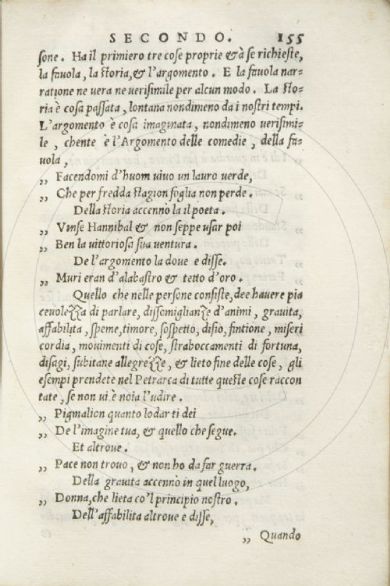 SECONDO. 155
sone. Ha il primiero tre cose proprie & à se richieste,
la fauola, la storia, & l'argomento. E la fauola nar-
ratione ne uera ne uerisimile per alcun modo. La sto-
ria è cosa passata, lontana nondimeno da i nostri tempi.
L'argomento è cosa imaginata, nondimeno uerisimi-
le, chente è l'Argomento delle comedie, della fa-
uola,
„ Facendomi d'huom uiuo un lauro uerde,
„ Che per fredda stagion foglia non perde.
Della storia accennò la il poeta.
„ Vinse Hannibal & non seppe usar poi
„ Ben la uittoriosa sua uentura.
De l'argomento la doue e disse.
„ Muri eran d'alabastro & tetto d'oro.
Quello che nelle persone consiste, dee hauere pia
ceuolezza di parlare, dissemiglianze d'animi, grauita,
affabilita, speme, timore, sospetto, disio, fintione, miseri
cordia, mouimenti di cose, straboccamenti di fortuna,
disagi, subitane allegrezze, & lieto fine delle cose, gli
esempi prendete nel Petrarca di tutte queste cose raccon
tate, se non ui è noia l'udire.
„ Pigmalion quanto lodar ti dei
„ De l'imagine tua, & quello che segue.
Et altroue.
„ Pace non trouo, & non ho da far guerra.
Della grauita accennò in quel luogo,
„ Donna, che lieta co'l principio nostro.
Dell'affabilita altroue e disse,
„ Quando